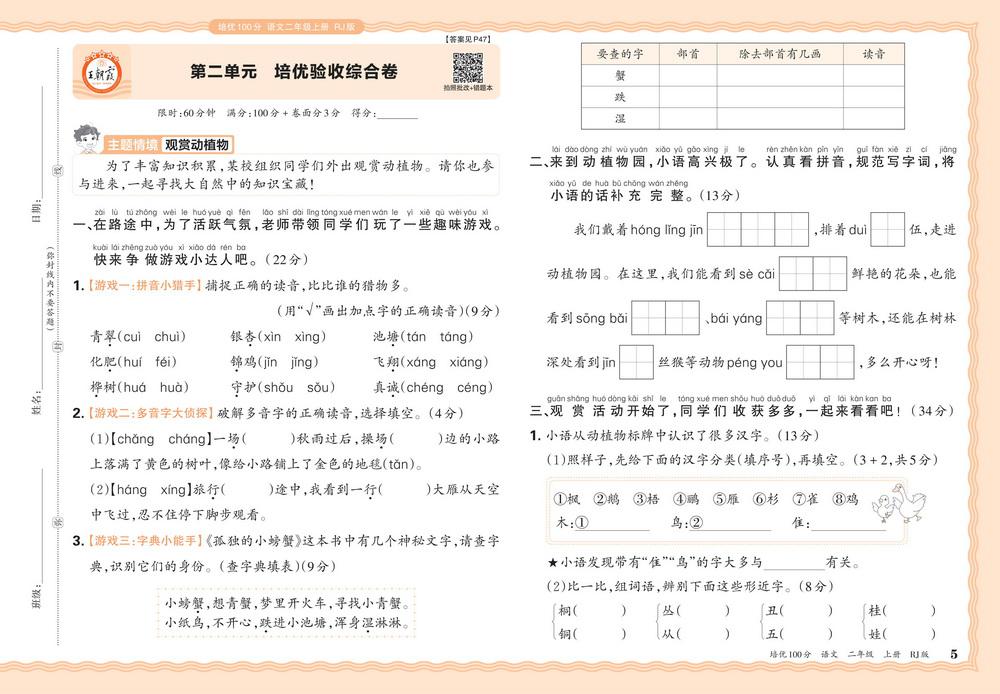 培优100分 语文二年级上册 RJ版
王朝霞
【答案见P47】
第二单元 培优验收综合卷
拍照批改+错题本
限时:60分钟 满分:100分+卷面分3分 得分:
主题情境 观赏动植物
为了丰富知识积累,某校组织同学们外出观赏动植物。请你也参
与进来,一起寻找大自然中的知识宝藏!
zài lù tú zhōng wèi le huó yuè qì fēn lǎo shī dài lǐng tóng xué men wán le yì xiē qù wèi yóu xì
一、在路途中,为了活跃气氛,老师带领同学们玩了一些趣味游戏。
kuài lái zhēng zuò yóu xì xiǎo dá rén ba
快来争做游戏小达人吧。(22分)
1.【游戏一:拼音小猎手】捕捉正确的读音,比比谁的猎物多。
(用“√”画出加点字的正确读音)(9分)
青翠(cuì chuì) 银杏(xìn xìng) 池塘(tán táng)
化肥(huí féi) 锦鸡(jīn jǐng) 飞翔(xáng xiáng)
桦树(huá huà) 守护(shǒu sǒu) 真诚(chéng céng)
2.【游戏二:多音字大侦探】破解多音字的正确读音,选择填空。(4分)
(1)【chǎng cháng】一场( )秋雨过后,操场( )边的小路
上落满了黄色的树叶,像给小路铺上了金色的地毯(tǎn)。
(2)【háng xíng】旅行( )途中,我看到一行( )大雁从天空
中飞过,忍不住停下脚步观看。
3.【游戏三:字典小能手】《孤独的小螃蟹》这本书中有几个神秘文字,请查字
典,识别它们的身份。(查字典填表)(9分)
小螃蟹,想青蟹,梦里开火车,寻找小青蟹。
小纸鸟,不开心,跌进小池塘,浑身湿淋淋。
日期:
姓名:
班级:
(弥封线内不要答题)
线
封
弥
要查的字 部首 除去部首有几画 读音
蟹
跌
湿
lái dào dòng zhí wù yuán xiǎo yǔ gāo xìng jí le rèn zhēn kàn pīn yīn guī fàn xiě zì cí jiāng
二、来到动植物园,小语高兴极了。认真看拼音,规范写字词,将
xiǎo yǔ de huà bǔ chōng wán zhěng
小语的话补充完整。(13分)
我们戴着hóng lǐng jīn ,排着duì 伍,走进
动植物园。在这里,我们能看到sè cǎi 鲜艳的花朵,也能
看到sōng bǎi 、bái yáng 等树木,还能在树林
深处看到jīn 丝猴等动物péng you ,多么开心呀!
guān shǎng huó dòng kāi shǐ le tóng xué men shōu huò duō duō yì qǐ lái kàn kan ba
三、观赏活动开始了,同学们收获多多,一起来看看吧!(34分)
1.小语从动植物标牌中认识了很多汉字。(13分)
(1)照样子,先给下面的汉字分类(填序号),再填空。(3+2,共5分)
①枫 ②鹅 ③梧 ④鹂 ⑤雁 ⑥杉 ⑦雀 ⑧鸡
木:① 鸟:② 隹:
★小语发现带有“隹”“鸟”的字大多与 有关。
(2)比一比,组词语,辨别下面这些形近字。(8分)
桐( ) 丛( ) 丑( ) 桂( )
铜( ) 从( ) 五( ) 娃( )
培优100分 语文 二年级 上册 RJ版 5